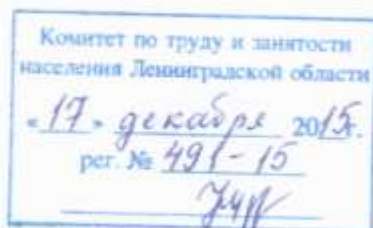 Комитет по труду и занятости
населения Ленинградской области
«17» декабря 2015г.
рег. № 491-15